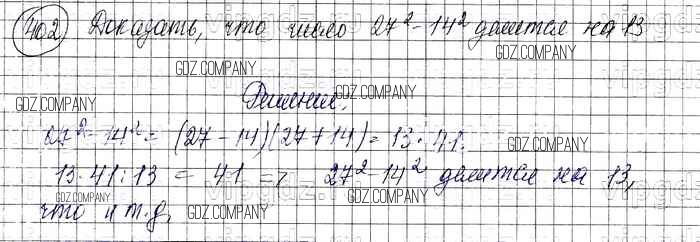 402 Доказать, что число 27² - 14² делится на 13
GDZ.COMPANY
GDZ.COMPANY
GDZ.COMPANY
Решение.
27² - 14² = (27 - 14)(27 + 14) = 13 · 41.
GDZ.COMPANY
13 · 41 : 13 = 41 => 27² - 14² делится на 13,
GDZ.COMPANY
GDZ.COMPANY
что и т.д.
GDZ.COMPANY
GDZ.COMPANY